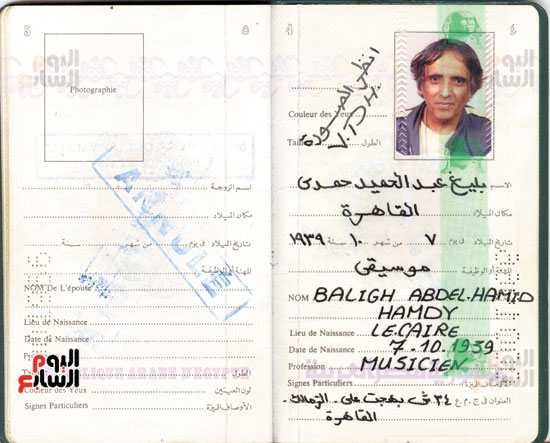 5
4
اليوم السابع
Photographie
ANNULE
اسم الزوجة
مكان الميلاد
تاريخ الميلاد في يوم من شهر سنة
المهنة أو الوظيفة
NOM De L'épouse
Lieu de Naissance
Date de Naissance
اليوم السابع
الطول
Couleur des Yeux لون العينين
Signes Particuliers الأوصاف المميزة
انظر الصورة
V. PH.
Couleur des Yeux
الطول
الاسم بليغ عبد الحميد حمدى
مكان الميلاد القاهرة
تاريخ الميلاد في يوم ٧ من شهر ١٠ سنة ١٩٣٩
المهنة أو الوظيفة موسيقى
NOM BALIGH ABDEL.HAMID
HAMDY
Lieu de Naissance LE.CAIRE
Date de Naissance 7.10.1939
Profession MUSICIEN
Signes Particuliers الأوصاف المميزة
العنوان في ج.م.ع ٣٤ ش بهجت على. الزمالك.
القاهرة